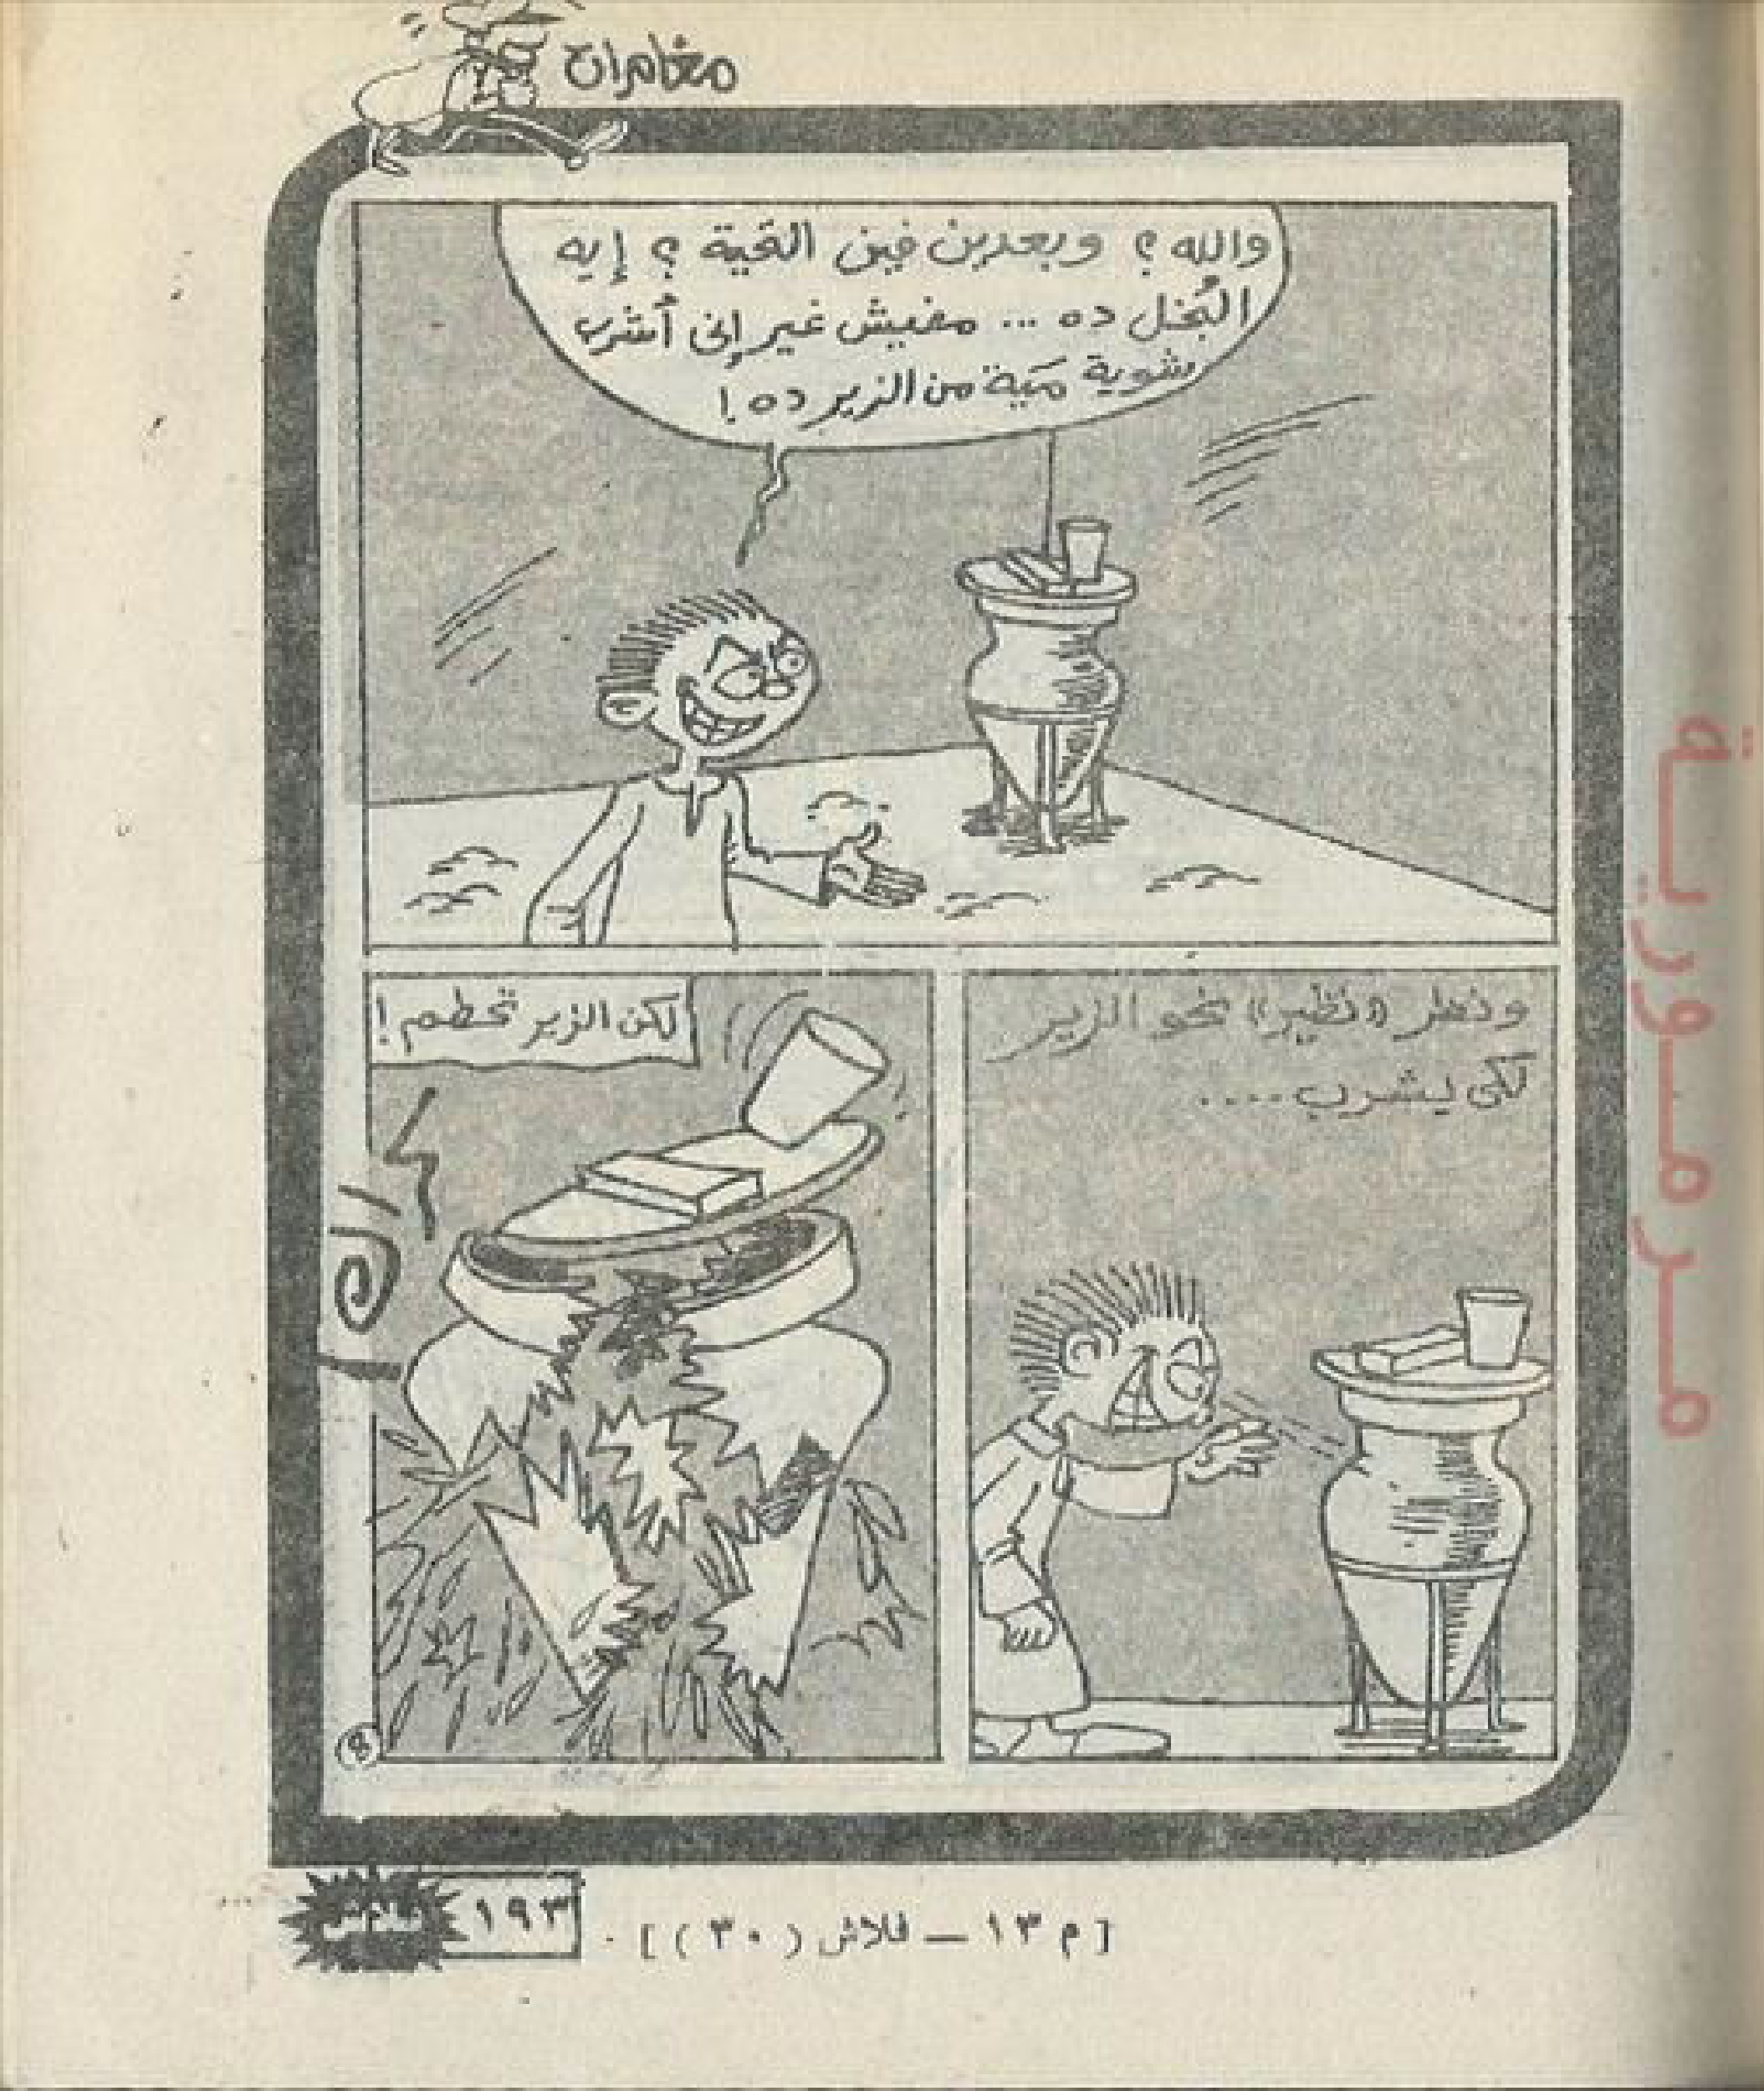 مغامرات
والله؟ وبعدين فين التحية؟ إيه
البُخل ده ... مفيش غير إنى أشرب
شوية مَية من الزير ده!
ونظر «نظير» نحو الزير
لكى يشرب ....
لكن الزير تحطم!
8
[ م ١٣ — فلاش ( ٣٠ ) ] .
١٩٣
فلاش
مرمورية